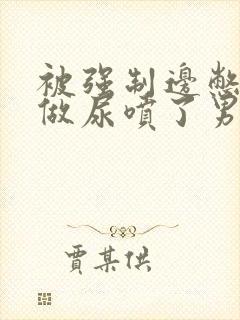 被强制边憋
做尿喷了男
贾某供